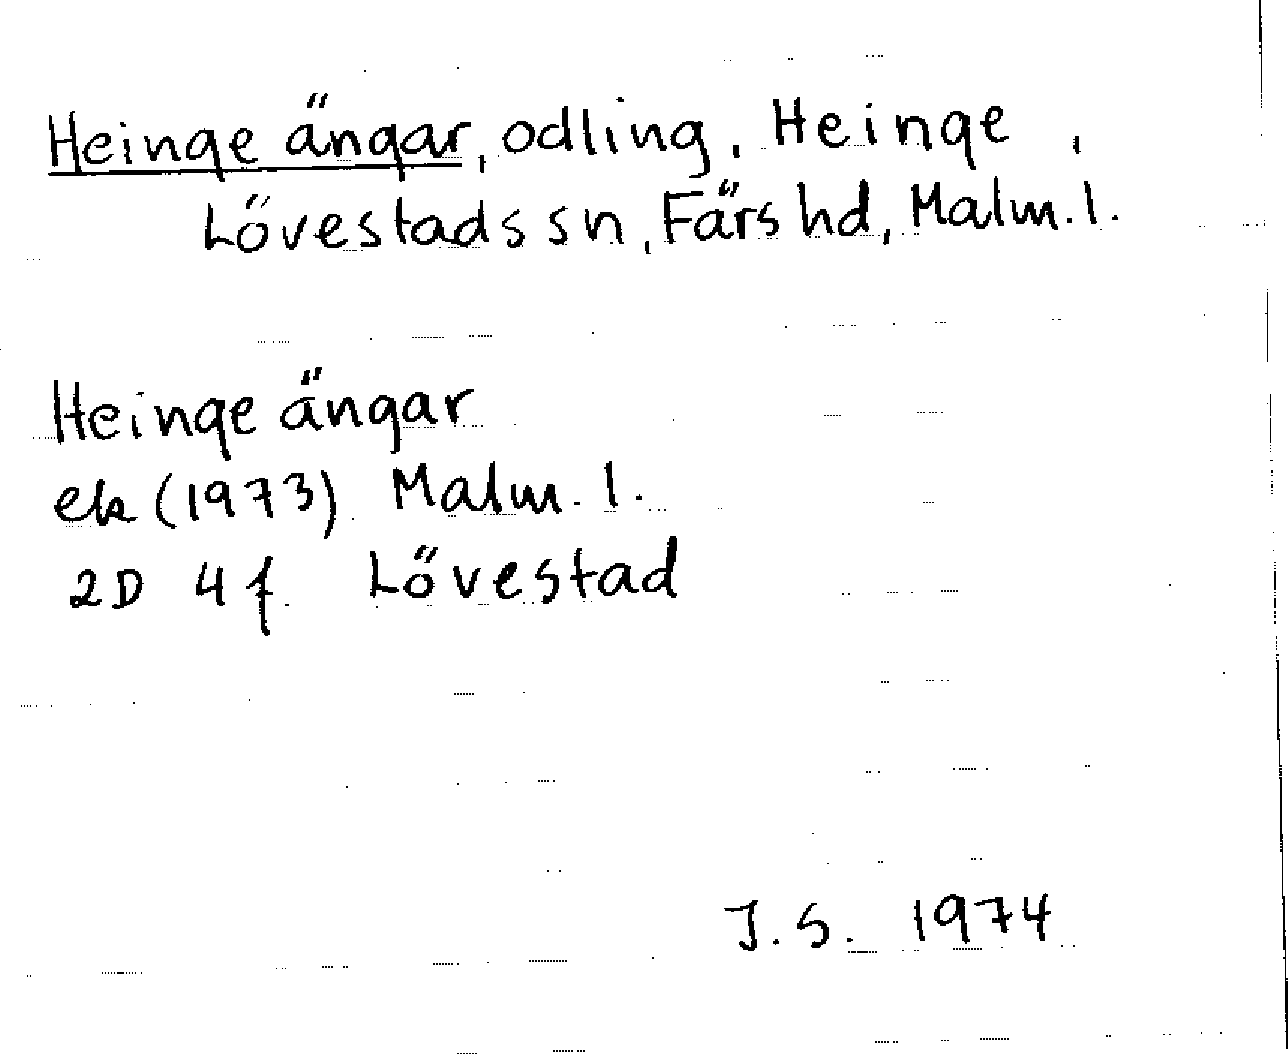 Heinge ängar, odling, Heinge,
Lövestads sn, Färs hd, Malm. l.
Heinge ängar
ek (1973) Malm. l.
2D 4f Lövestad
J.S. 1974